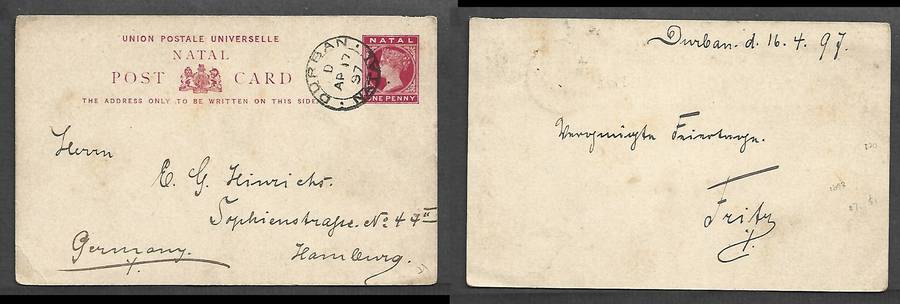 UNION POSTALE UNIVERSELLE
NATAL
POST CARD
THE ADDRESS ONLY TO BE WRITTEN ON THIS SIDE
NATAL
ONE PENNY
DURBAN · NATAL
D
AP 17
97
Herrn
E. G. Hinrichs.
Sophienstraße. No 44 II
Germany.
Hamburg.
Durban. d. 16. 4. 97.
Vergnügte Feiertage.
Fritz